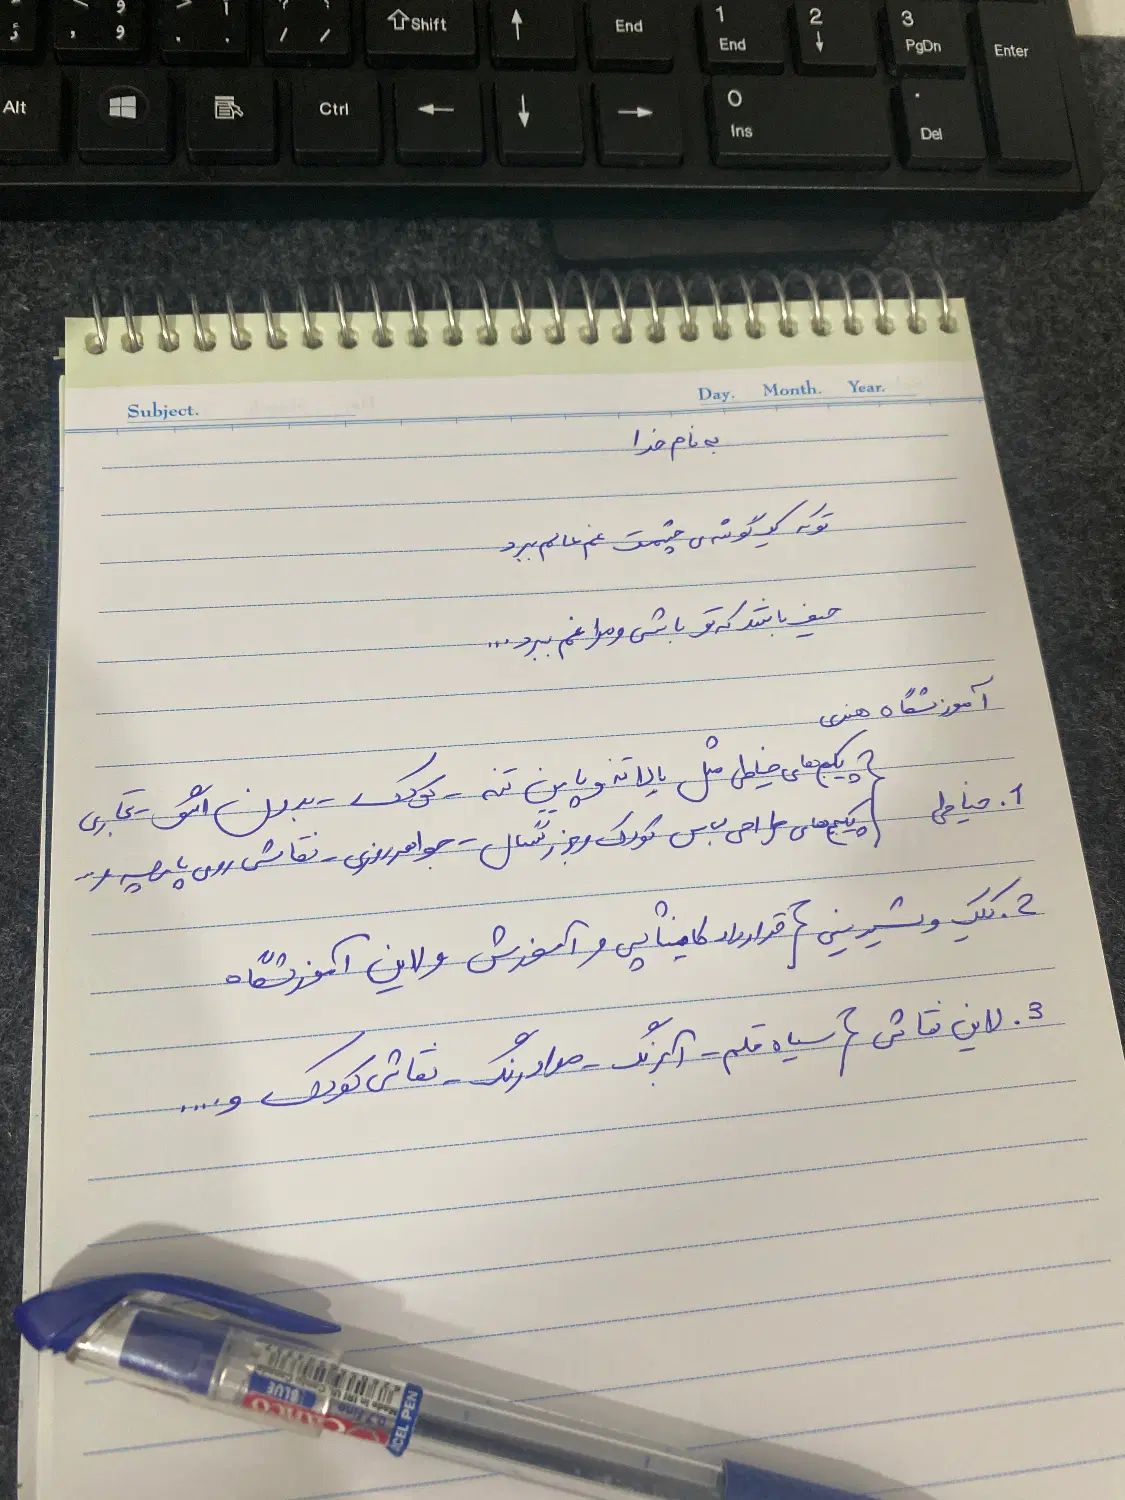 Shift
End
1
End
2
3
PgDn
Enter
Alt
Ctrl
0
Ins
.
Del
Subject.
Day. Month. Year.
به نام خدا
تو که یک گوشه‌ی چشمت غم عالم ببرد
حیف باشد که تو باشی و مرا غم ببرد...
آموزشگاه هنری
1. خیاطی
پکیج‌های خیاطی مثل بالا تنه و پایین تنه - کودک - بدون الگو - تجاری
پکیج‌های طراحی لباس کودک و بزرگسال - جواهردوزی - نقاشی روی پارچه و..
2. کیک و شیرینی } قرارداد کارخانه و آموزش و لاین آموزشگاه
3. لاین نقاشی } سیاه قلم - آبرنگ - مدادرنگ - نقاشی کودک و....
BLUE
0.7 fine
ACEL PEN